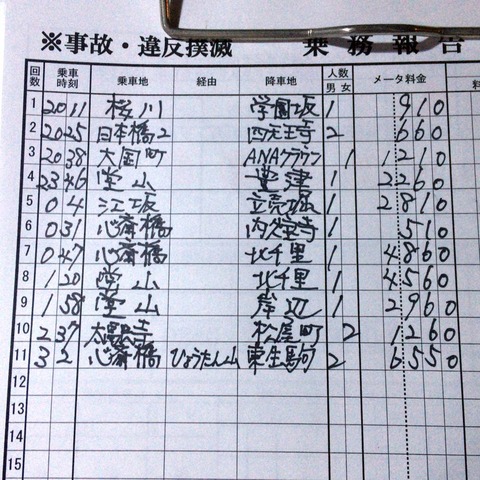 ※事故・違反撲滅 乗務報告
回数 乗車時刻 乗車地 経由 降車地 人数 男 女 メータ料金
1 20 11 桜川 学園坂 1 910
2 20 25 日本橋2 四天王寺 2 660
3 20 38 大国町 ANAクラウン 1 1210
4 23 46 堂山 豊津 1 2260
5 0 4 江坂 立売堀 1 2810
6 0 31 心斎橋 内久宝寺 1 510
7 0 47 心斎橋 北千里 1 4860
8 1 20 堂山 北千里 1 4560
9 1 58 堂山 岸辺 1 2960
10 2 37 太融寺 松屋町 2 1260
11 3 2 心斎橋 ひょうたん山 東生駒 2 6550
12
13
14
15